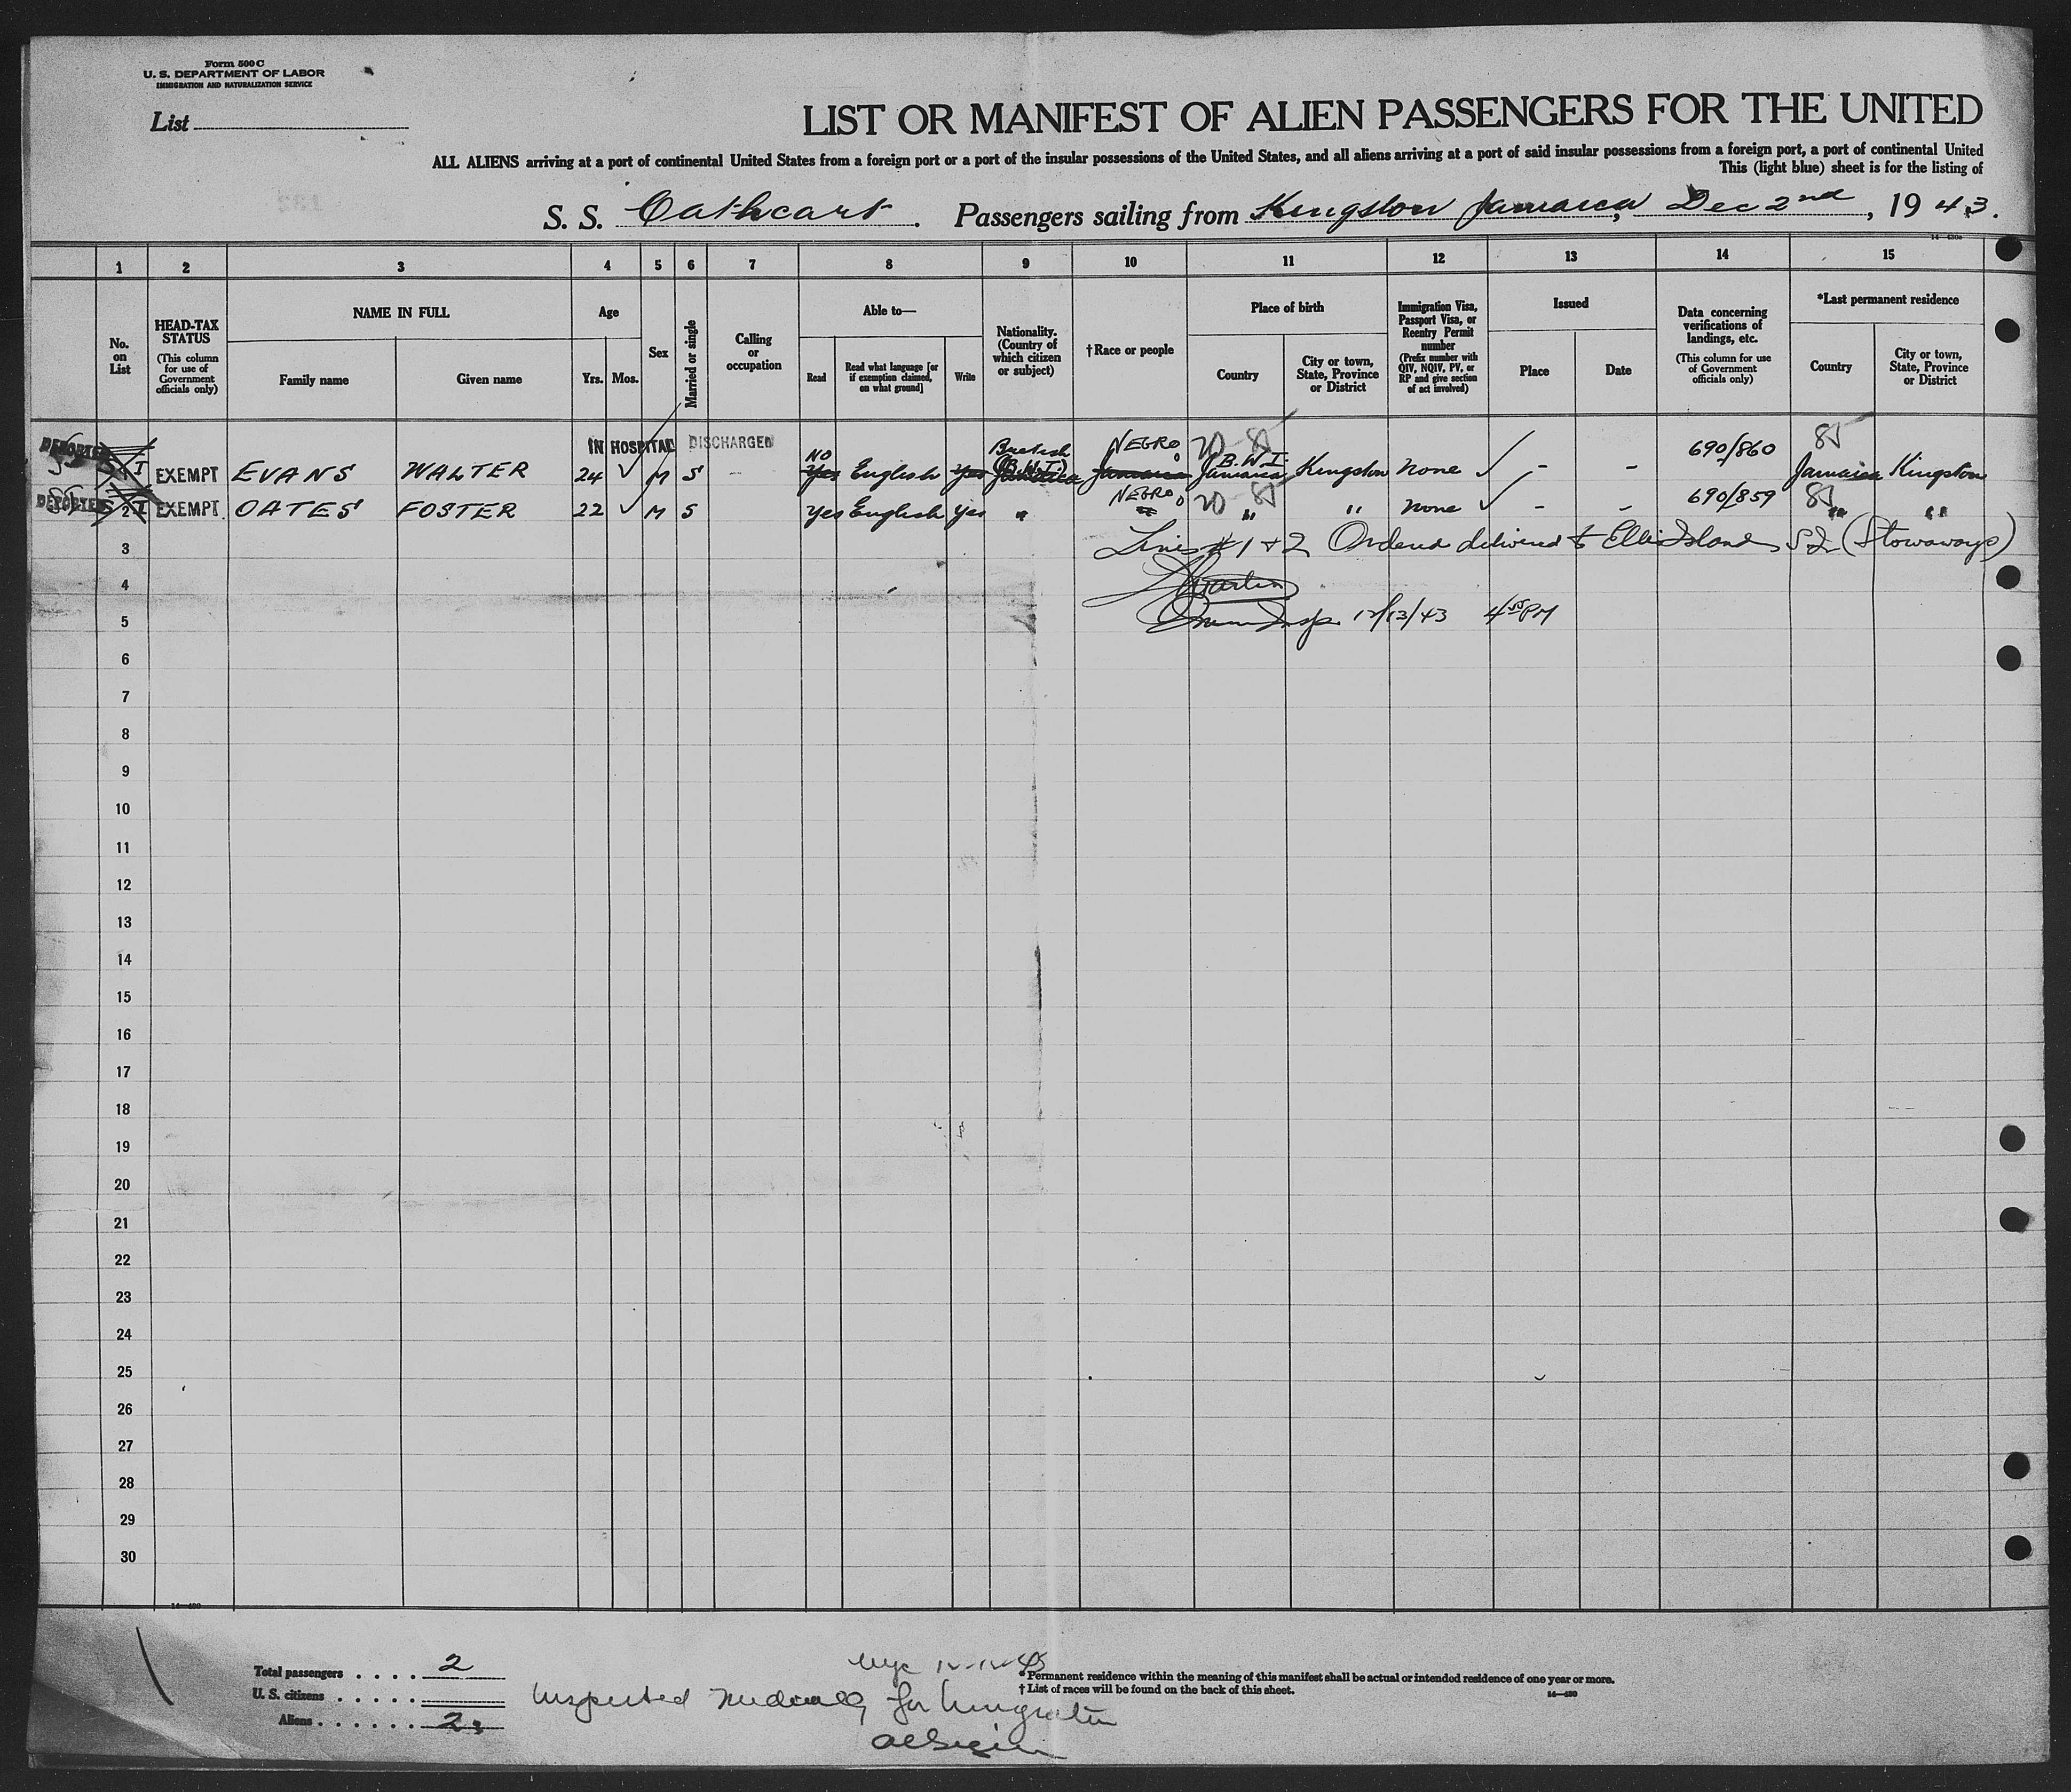 Form 500 C
U. S. DEPARTMENT OF LABOR
IMMIGRATION AND NATURALIZATION SERVICE
List
LIST OR MANIFEST OF ALIEN PASSENGERS FOR THE UNITED
ALL ALIENS arriving at a port of continental United States from a foreign port or a port of the insular possessions of the United States, and all aliens arriving at a port of said insular possessions from a foreign port, a port of continental United
This (light blue) sheet is for the listing of
S. S. Cathcart. Passengers sailing from Kingston Jamaica, Dec 2nd, 1943.
14—430a
1 2 3 4 5 6 7 8 9 10 11 12 13 14 15
No. on List
HEAD-TAX STATUS (This column for use of Government officials only)
NAME IN FULL
Family name Given name
Age
Yrs. Mos.
Sex
Married or single
Calling or occupation
Able to—
Read Read what language [or if exemption claimed, on what ground] Write
Nationality. (Country of which citizen or subject)
†Race or people
Place of birth
Country City or town, State, Province or District
Immigration Visa, Passport Visa, or Reentry Permit number (Prefix number with QIV, NQIV, PV, or RP and give section of act involved)
Issued
Place Date
Data concerning verifications of landings, etc. (This column for use of Government officials only)
*Last permanent residence
Country City or town, State, Province or District
DEPORTED IN HOSPITAL DISCHARGED NO British NEGRO 20-85 B.W.I. 690/860 85
SI EXEMPT EVANS WALTER 24 ✓ M S - Yes English Yes (B.W.I.) Jamaica Jamaica Jamaica Kingston None ✓ - - Jamaica Kingston
DEPORTED NEGRO 20-85 690/859 85
2 SI EXEMPT OATES FOSTER 22 ✓ M S Yes English Yes " " " " None ✓ - - " "
3 Lines # 1 + 2 Ordered delivered to Ellis Island SI (Stowaways)
4 Martin
5 Insp. 12/13/43 4 55 PM
6
7
8
9
10
11
12
13
14
15
16
17
18
19
20
21
22
23
24
25
26
27
28
29
30
14—430
Total passengers . . . . 2
U. S. citizens . . . . .
Aliens . . . . . . 2
Inspected Medically for Immigration
*Permanent residence within the meaning of this manifest shall be actual or intended residence of one year or more.
†List of races will be found on the back of this sheet.
14—430